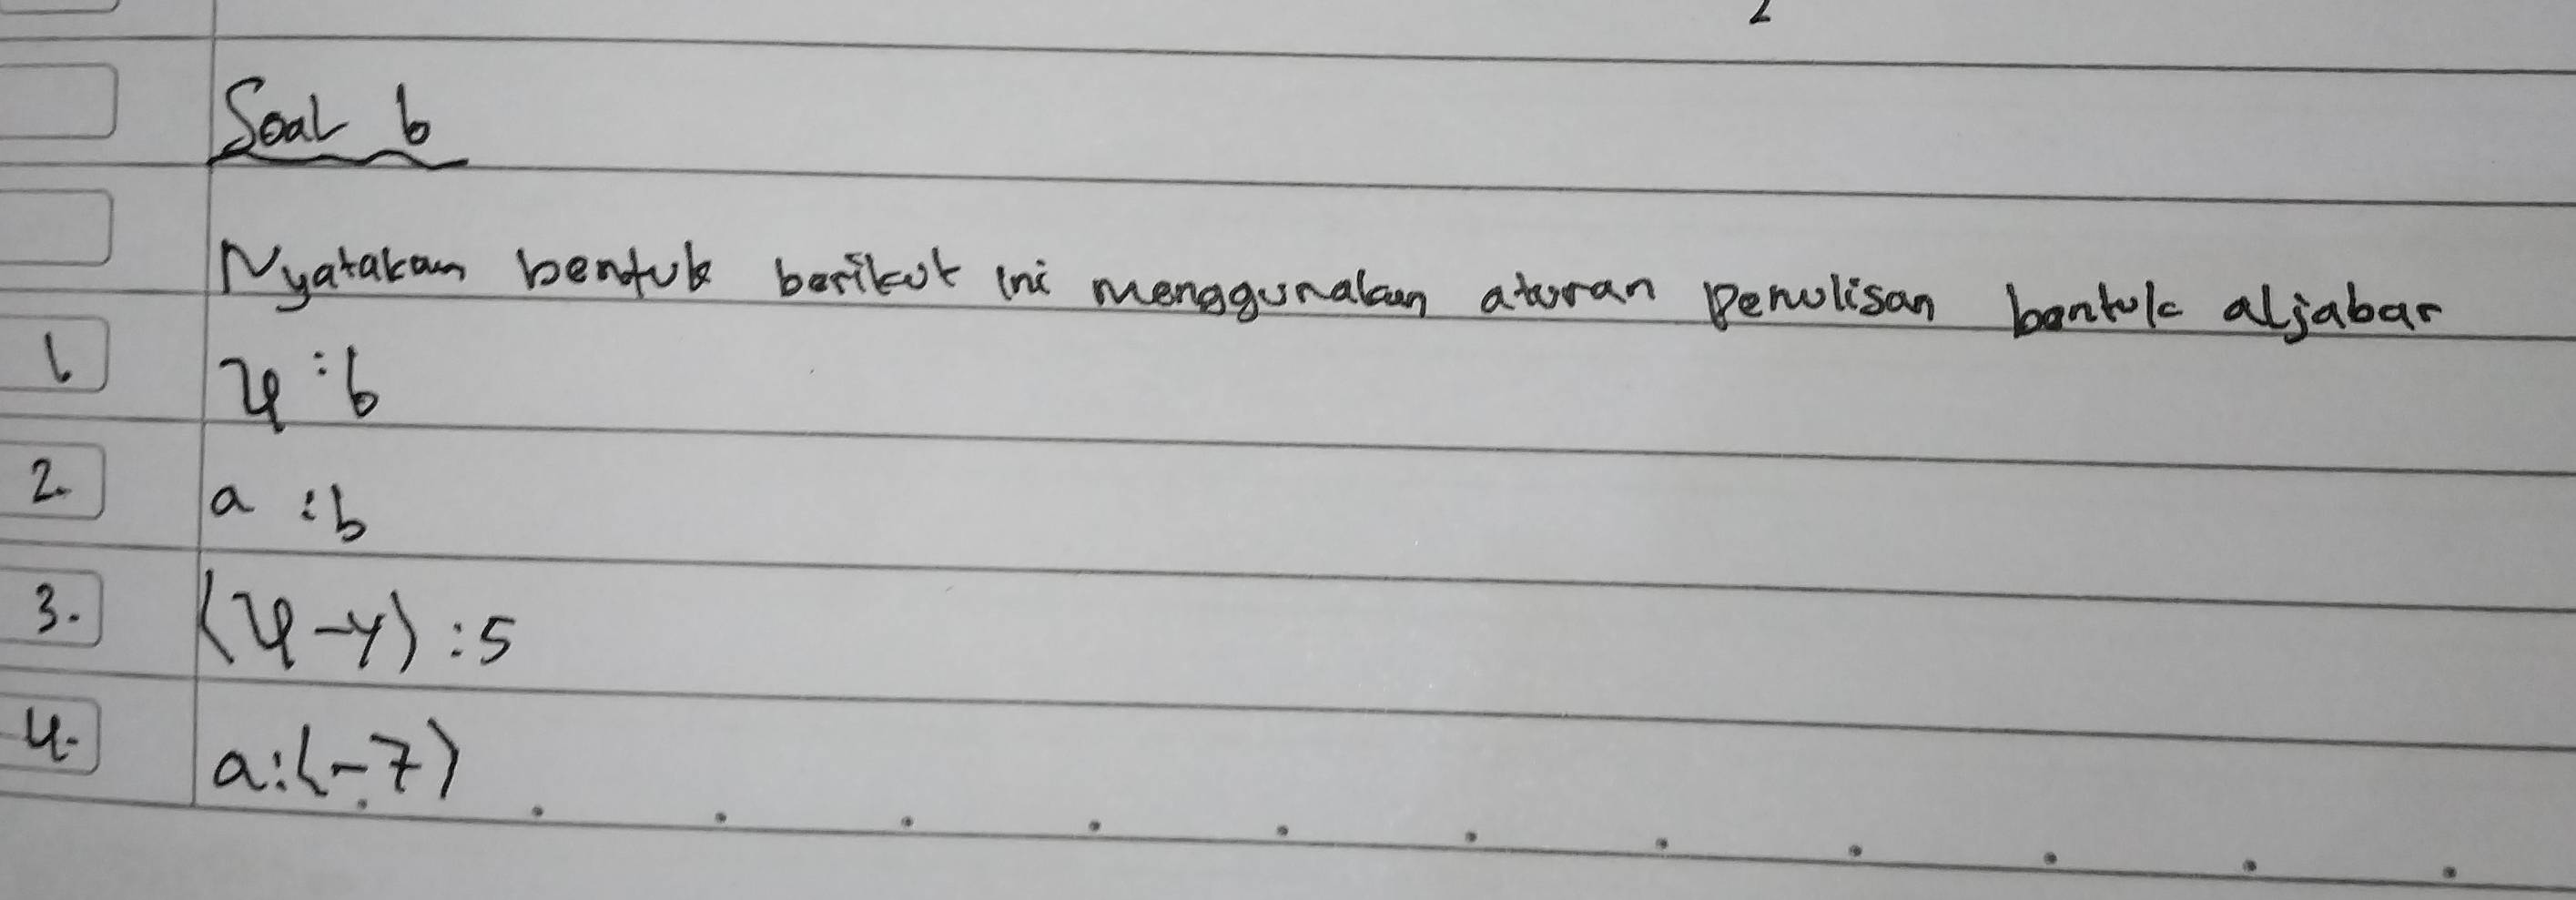 2
Soal 6
Nyatakan bentuk berikut ini menggunakan aturan penulisan bentuk aljabar
1. x : 6
2. a : b
3. (x - y) : 5
4. a : (-7)